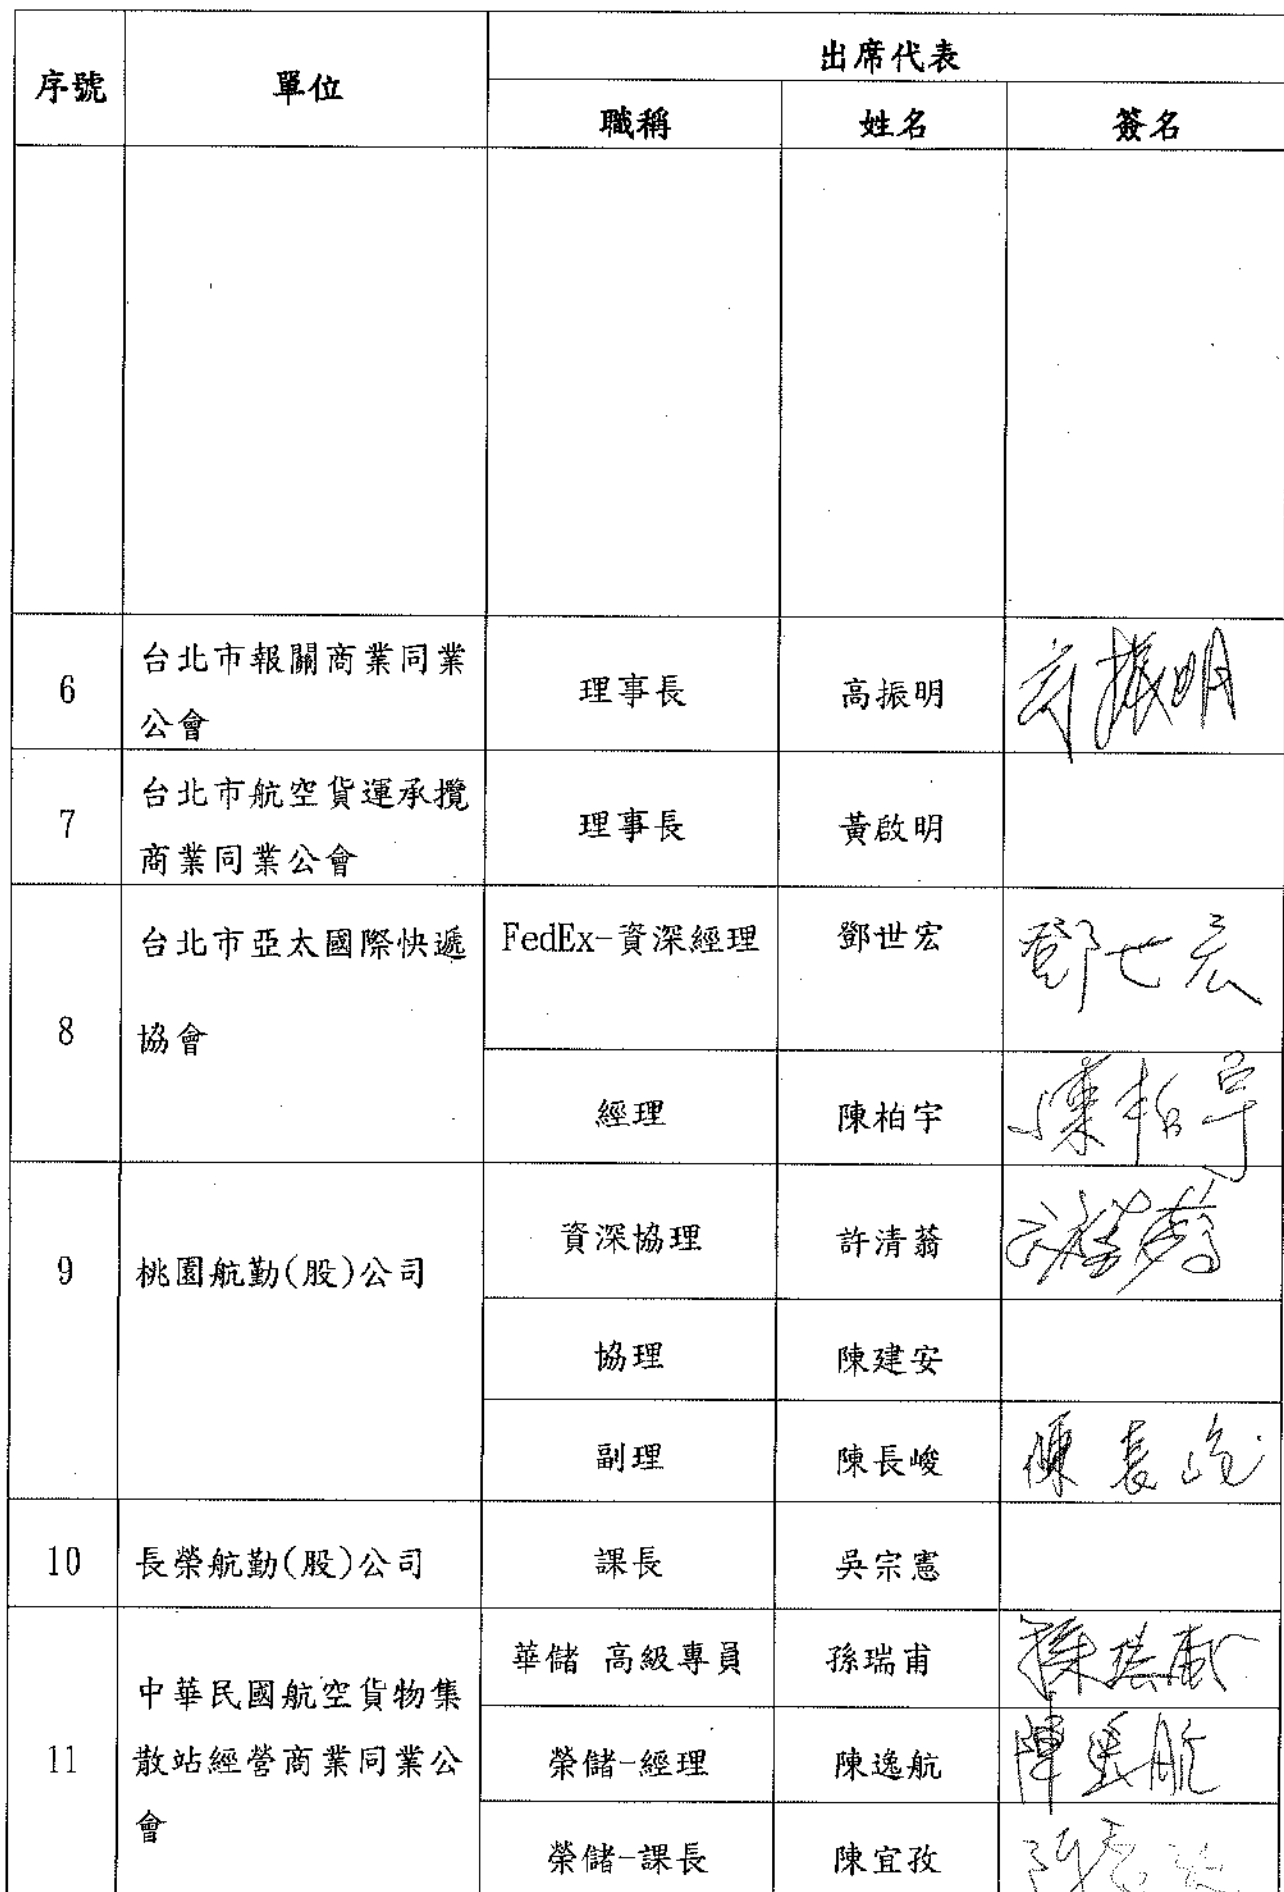 出席代表
序號 單位
職稱 姓名 簽名
6 台北市報關商業同業公會 理事長 高振明 高振明
7 台北市航空貨運承攬商業同業公會 理事長 黃啟明
8 台北市亞太國際快遞協會 FedEx-資深經理 鄧世宏 鄧世宏
經理 陳柏宇 陳柏宇
9 桃園航勤(股)公司 資深協理 許清蓊
協理 陳建安
副理 陳長峻 陳長峻
10 長榮航勤(股)公司 課長 吳宗憲
11 中華民國航空貨物集散站經營商業同業公會 華儲 高級專員 孫瑞甫 孫瑞甫
榮儲-經理 陳逸航 陳逸航
榮儲-課長 陳宜孜